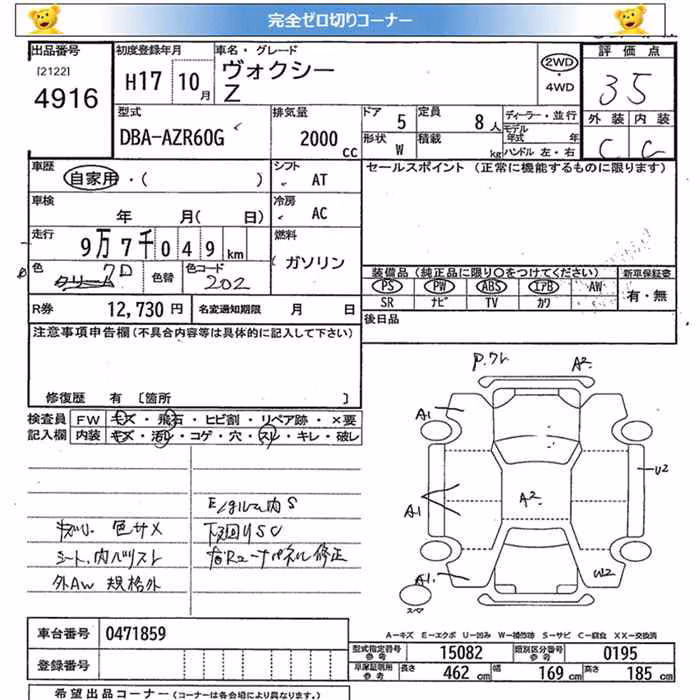 完全ゼロ切りコーナー
出品番号 初度登録年月 車名・グレード 評価点
[2122] 4916 H17 10月 ヴォクシー Z 2WD・4WD 35
型式 排気量 ドア 定員 ディーラー・並行 外装 内装
DBA-AZR60G 2000cc 5 8人 モデル年式 年 C C
形状 W 積載 kg ハンドル 左・右
車歴 自家用・( ) シフト AT セールスポイント (正常に機能するものに限ります)
車検 年 月( 日) 冷房 AC
走行 9万7千049km 燃料 ガソリン
色 クリーム 色替 色コード 202
装備品 (純正品に限り〇をつけてください) 新車保証書
PS PW ABS エアB AW 有・無
SR ナビ TV カワ
R券 12,730円 名変通知期限 月 日 後日品
注意事項申告欄 (不具合内容等は具体的に記入して下さい)
修復歴 有 [箇所 ]
検査員 FW キズ・飛石・ヒビ割・リペア跡・×要
記入欄 内装 キズ・汚レ・コゲ・穴・スレ・キレ・破レ
P.ワレ A2
A1
A1 A2 U2
A1 W2
スペア
E/gルーム内S
キズ凹 色サメ 下廻りSC
シート,内ヘリスレ 右Rコーナーパネル修正
外AW 規格外
A-キズ E-エクボ U-凹み W-補修跡 S-サビ C-腐食 XX-交換済
車台番号 0471859 型式指定番号 参考 15082 類別区分番号 参考 0195
登録番号 車庫証明用 参考 長さ 462cm 幅 169cm 高さ 185cm
希望出品コーナー (コーナーは各会場により異なります。)